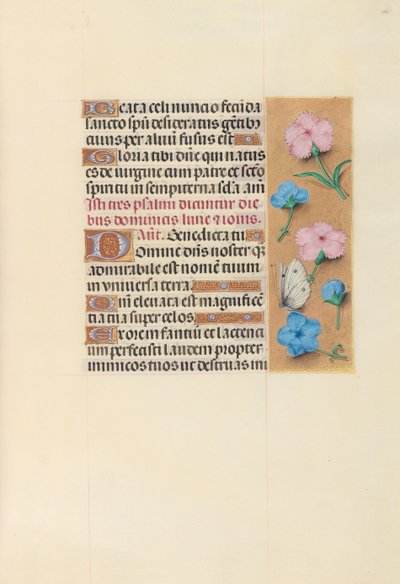 Beata celi nuncio fecūda
sancto spū desideratus gētibꝫ
cuius per aluū fusus est
Gloria tibi dñe qui natus
es de virgine cum patre et scō
spiritu in sempiterna sċla am̄
Isti tres psalmi dicuntur die
bus dominicis lune ⁊ iovis.
Añt. Benedicta tu
Domine dñs noster qͣ
admirabile est nomē tuum
in vniversa terra
Qm̄ elevata est magnificē
tia tua super celos
Ex ore infantiū et lactenti
um perfecisti laudem propter
inimicos tuos ut destruas ini